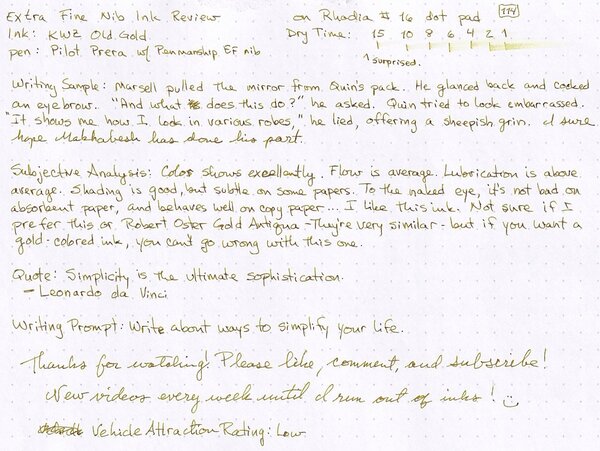 Extra Fine Nib Ink Review on Rhodia # 16 dot pad 114
Ink: KWZ Old Gold Dry Time: 15 10 8 6 4 2 1
pen: Pilot Prera w/ Penmanship EF nib ^ surprised.
Writing Sample: Marsell pulled the mirror from Quin's pack. He glanced back and cocked
an eyebrow. "And what does this do?" he asked. Quin tried to look embarrassed.
"It shows me how I look in various robes," he lied, offering a sheepish grin. I sure
hope Makhabesh has done his part.
Subjective Analysis: Color shows excellently. Flow is average. Lubrication is above
average. Shading is good, but subtle on some papers. To the naked eye, it's not bad on
absorbent paper, and behaves well on copy paper... I like this ink. Not sure if I
prefer this or Robert Oster Gold Antiqua - They're very similar - but if you want a
gold-colored ink, you can't go wrong with this one.
Quote: Simplicity is the ultimate sophistication.
- Leonardo da Vinci
Writing Prompt: Write about ways to simplify your life.
Thanks for watching! Please like, comment, and subscribe!
New videos every week until I run out of inks! :)
Vehicle Attraction Rating: Low